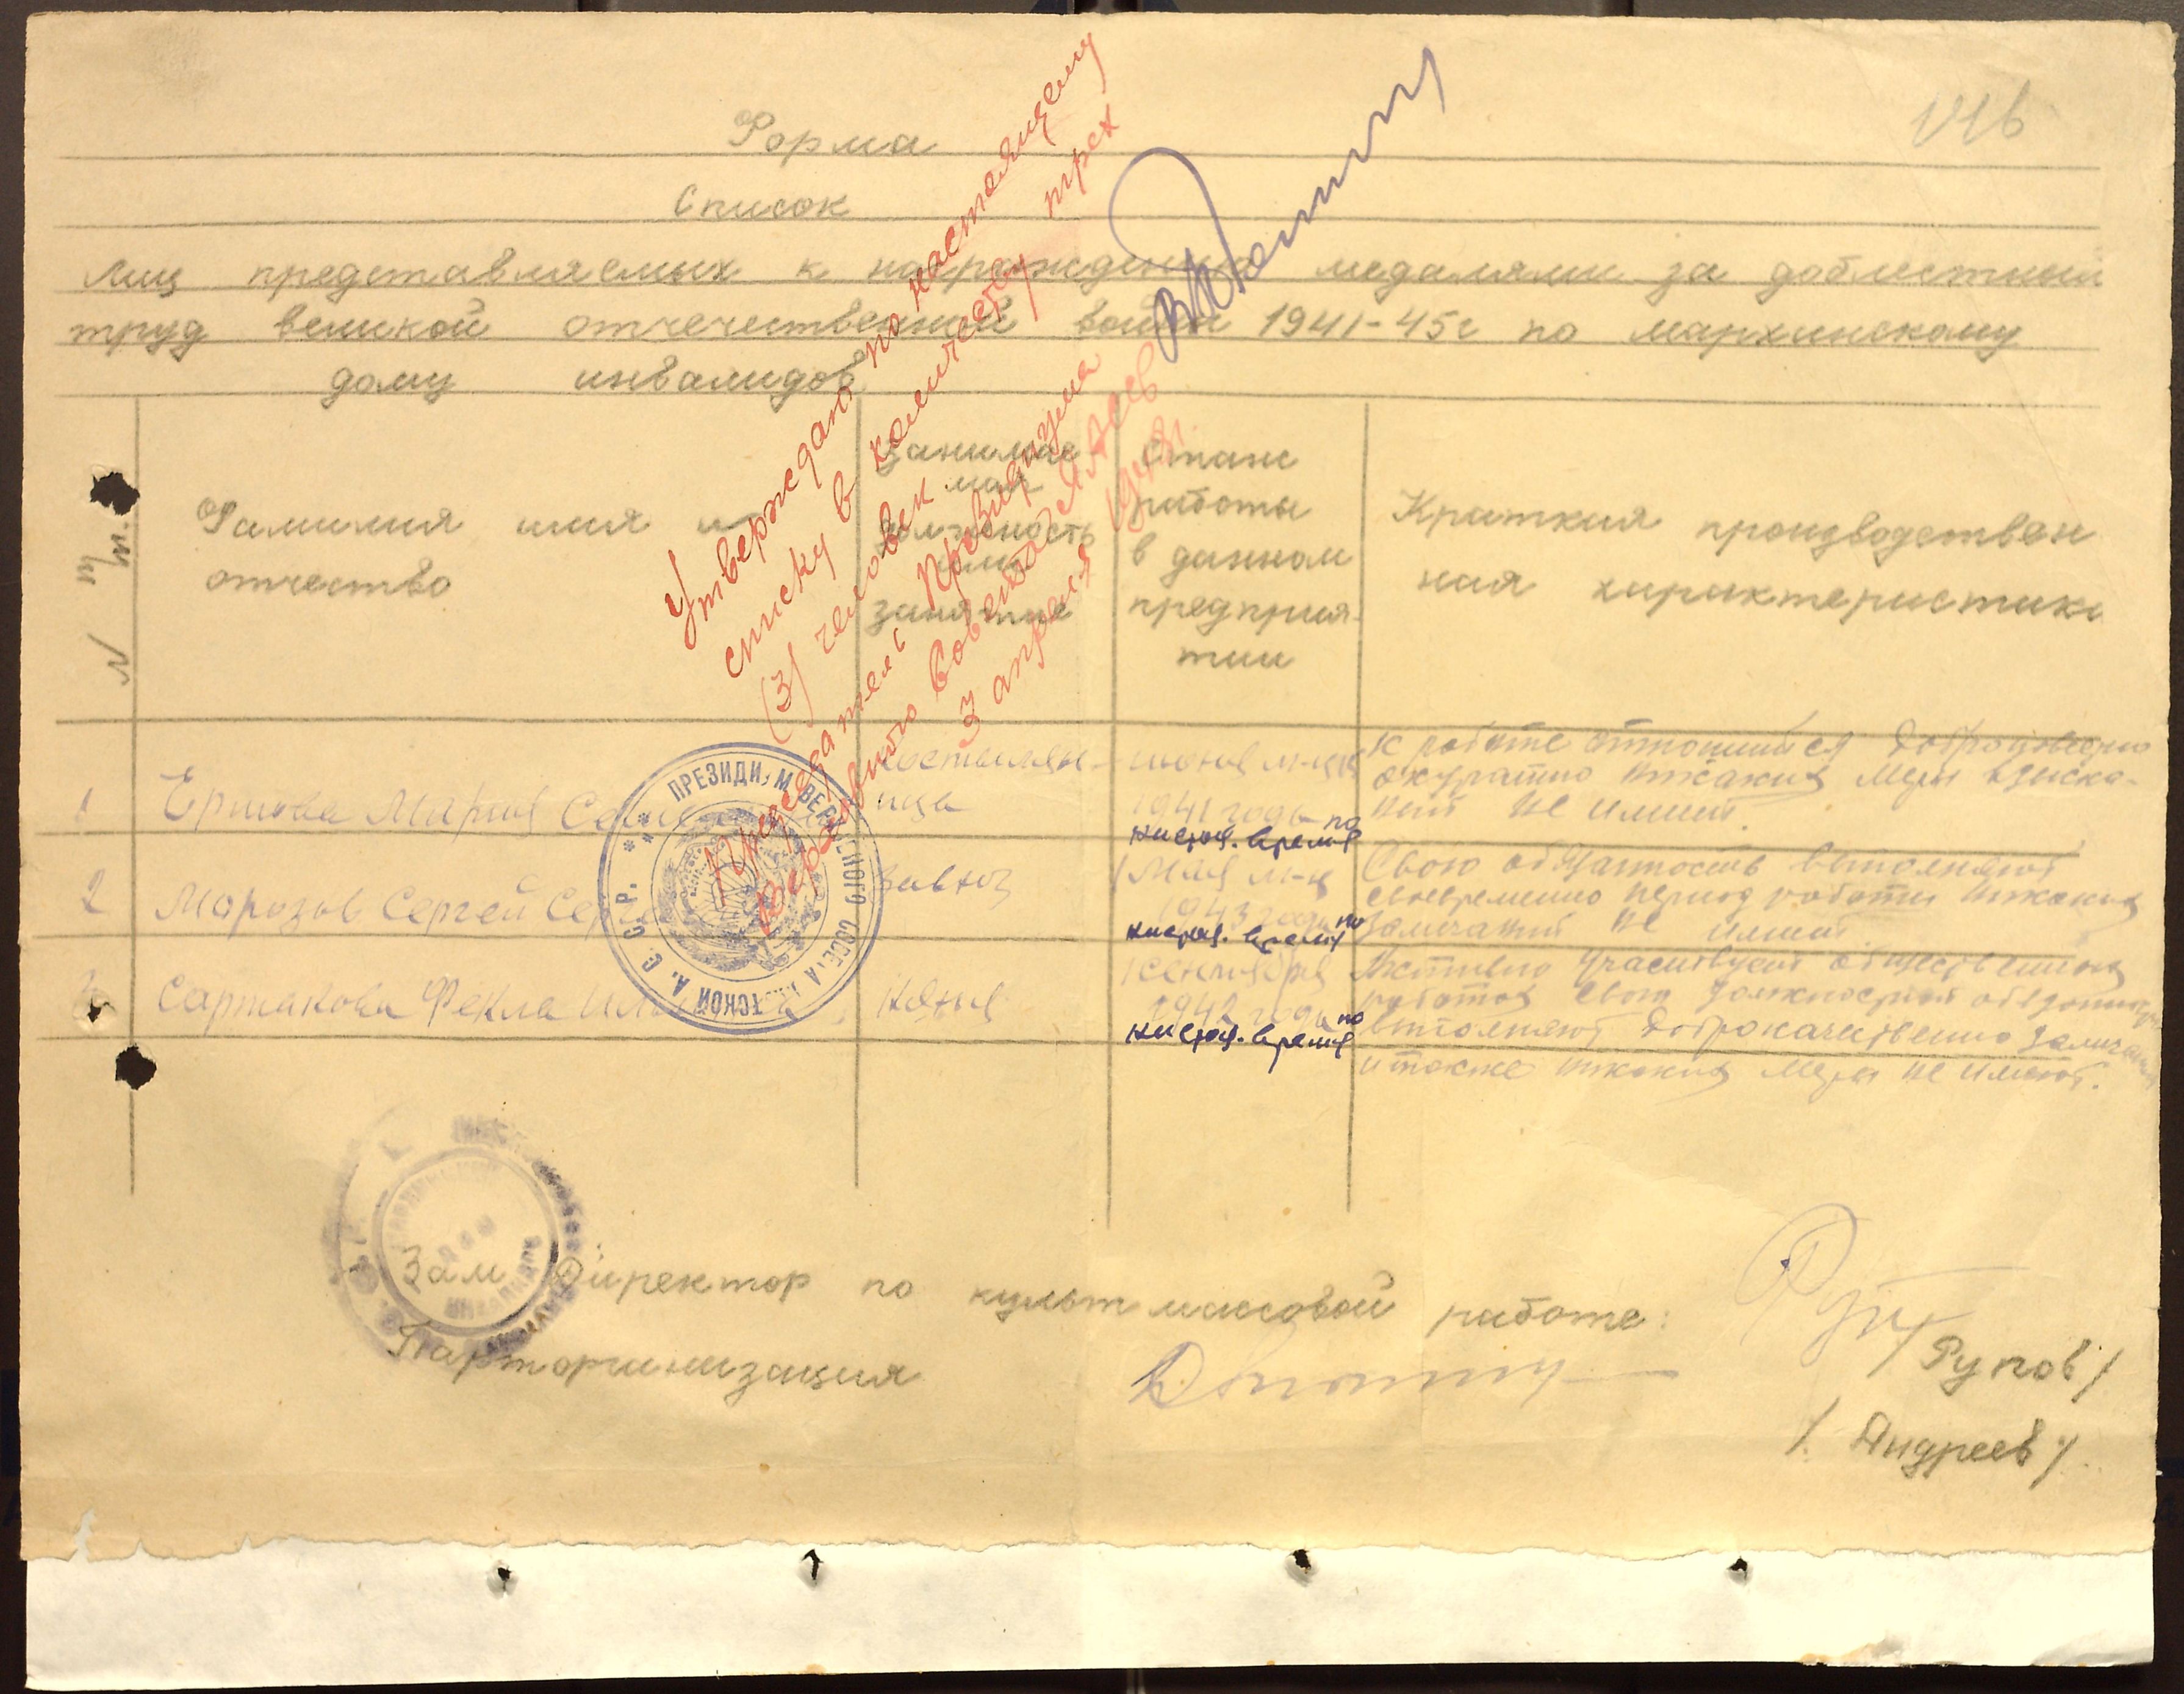 146
Форма
Список
лиц представляемых к награждению медалями за доблестный
труд великой отечественной войны 1941-45г по мархинскому
дому инвалидов
Утверждаю по настоящему
списку в количестве трех
(3) человек
Председатель Президиума
Верховного Совета ЯАССР
3 апреля 194
N п/п.
Фамилия имя и
отчество
Занимае
мая
должность
или
занятие
Стаж
работы
в данном
предприя-
тии
Краткая производствен
ная характеристика
1
Ершова Мария
нца
июня м-ца
1941 года по
настоя. время
К работе относится добросовестно
акуратно никаких меры взыска-
ний не имеет.
2
Морозов Сергей
Завхоз
1 мая м-ца
1943 года по
настоя. время
Свою обязаность выполняет
своевременно период работы никаких
замечаний не имеет
3
Сартакова Фекла
Няня
1 сентября
1942 года по
настоя. время
Активно участвует общественных
работах свои должностной
выполняют доброкачественно
и также никаких меры не имеют.
ПРЕЗИДИУМ ВЕРХОВНОГО СОВЕТА ЯКУТСКОЙ А. С. С. Р.
Зам Директор по культмассовой работе:
/Рупов/
Парторганизация
/. Андреев/.